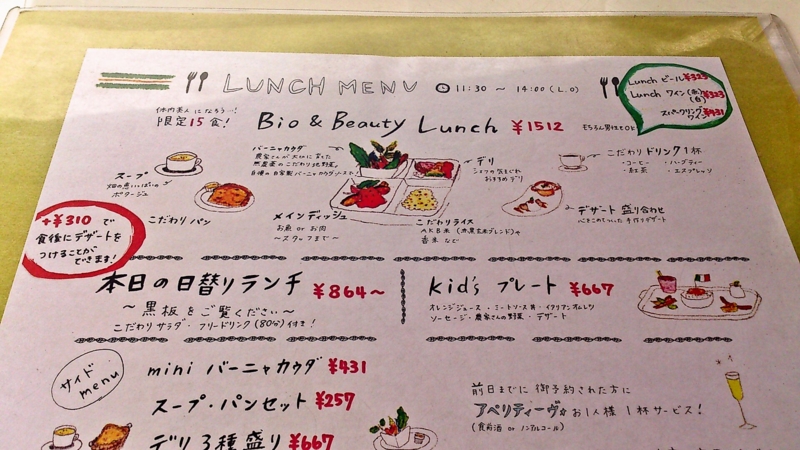 LUNCH MENU 11:30 ～ 14:00 (L.O)
Lunch ビール ¥323
Lunch ワイン (赤)(白) ¥323
スパークリングワイン ¥431
体内美人になろう…!
限定15食!
Bio & Beauty Lunch ¥1512
もちろん男性もOK
バーニャカウダ
農家さんが大切に育てた
無農薬のこだわり野菜
自慢の自家製バーニャカウダソース!
デリ
シェフの気まぐれ
おすすめデリ
こだわりドリンク1杯
・コーヒー ・ハーブティー
・紅茶 ・エスプレッソ
スープ
畑の恵いっぱいの
ポタージュ
こだわりパン
メインディッシュ
お魚 or お肉
～スタッフまで～
こだわりライス
デザート盛り合わせ
+¥310で
食後にデザートを
つけることが
できます!
本日の日替りランチ ¥864～
～黒板をご覧ください～
こだわりサラダ・フリードリンク(80分)付き!
kid's プレート ¥667
オレンジジュース・ミートソース丼・イタリアンオムレツ
ソーセージ・農家さんの野菜・デザート
サイドmenu
mini バーニャカウダ ¥431
スープ・パンセット ¥257
デリ3種盛り ¥667
前日までに御予約された方に
アペリティーヴをお1人様1杯サービス!
(食前酒 or ノンアルコール)